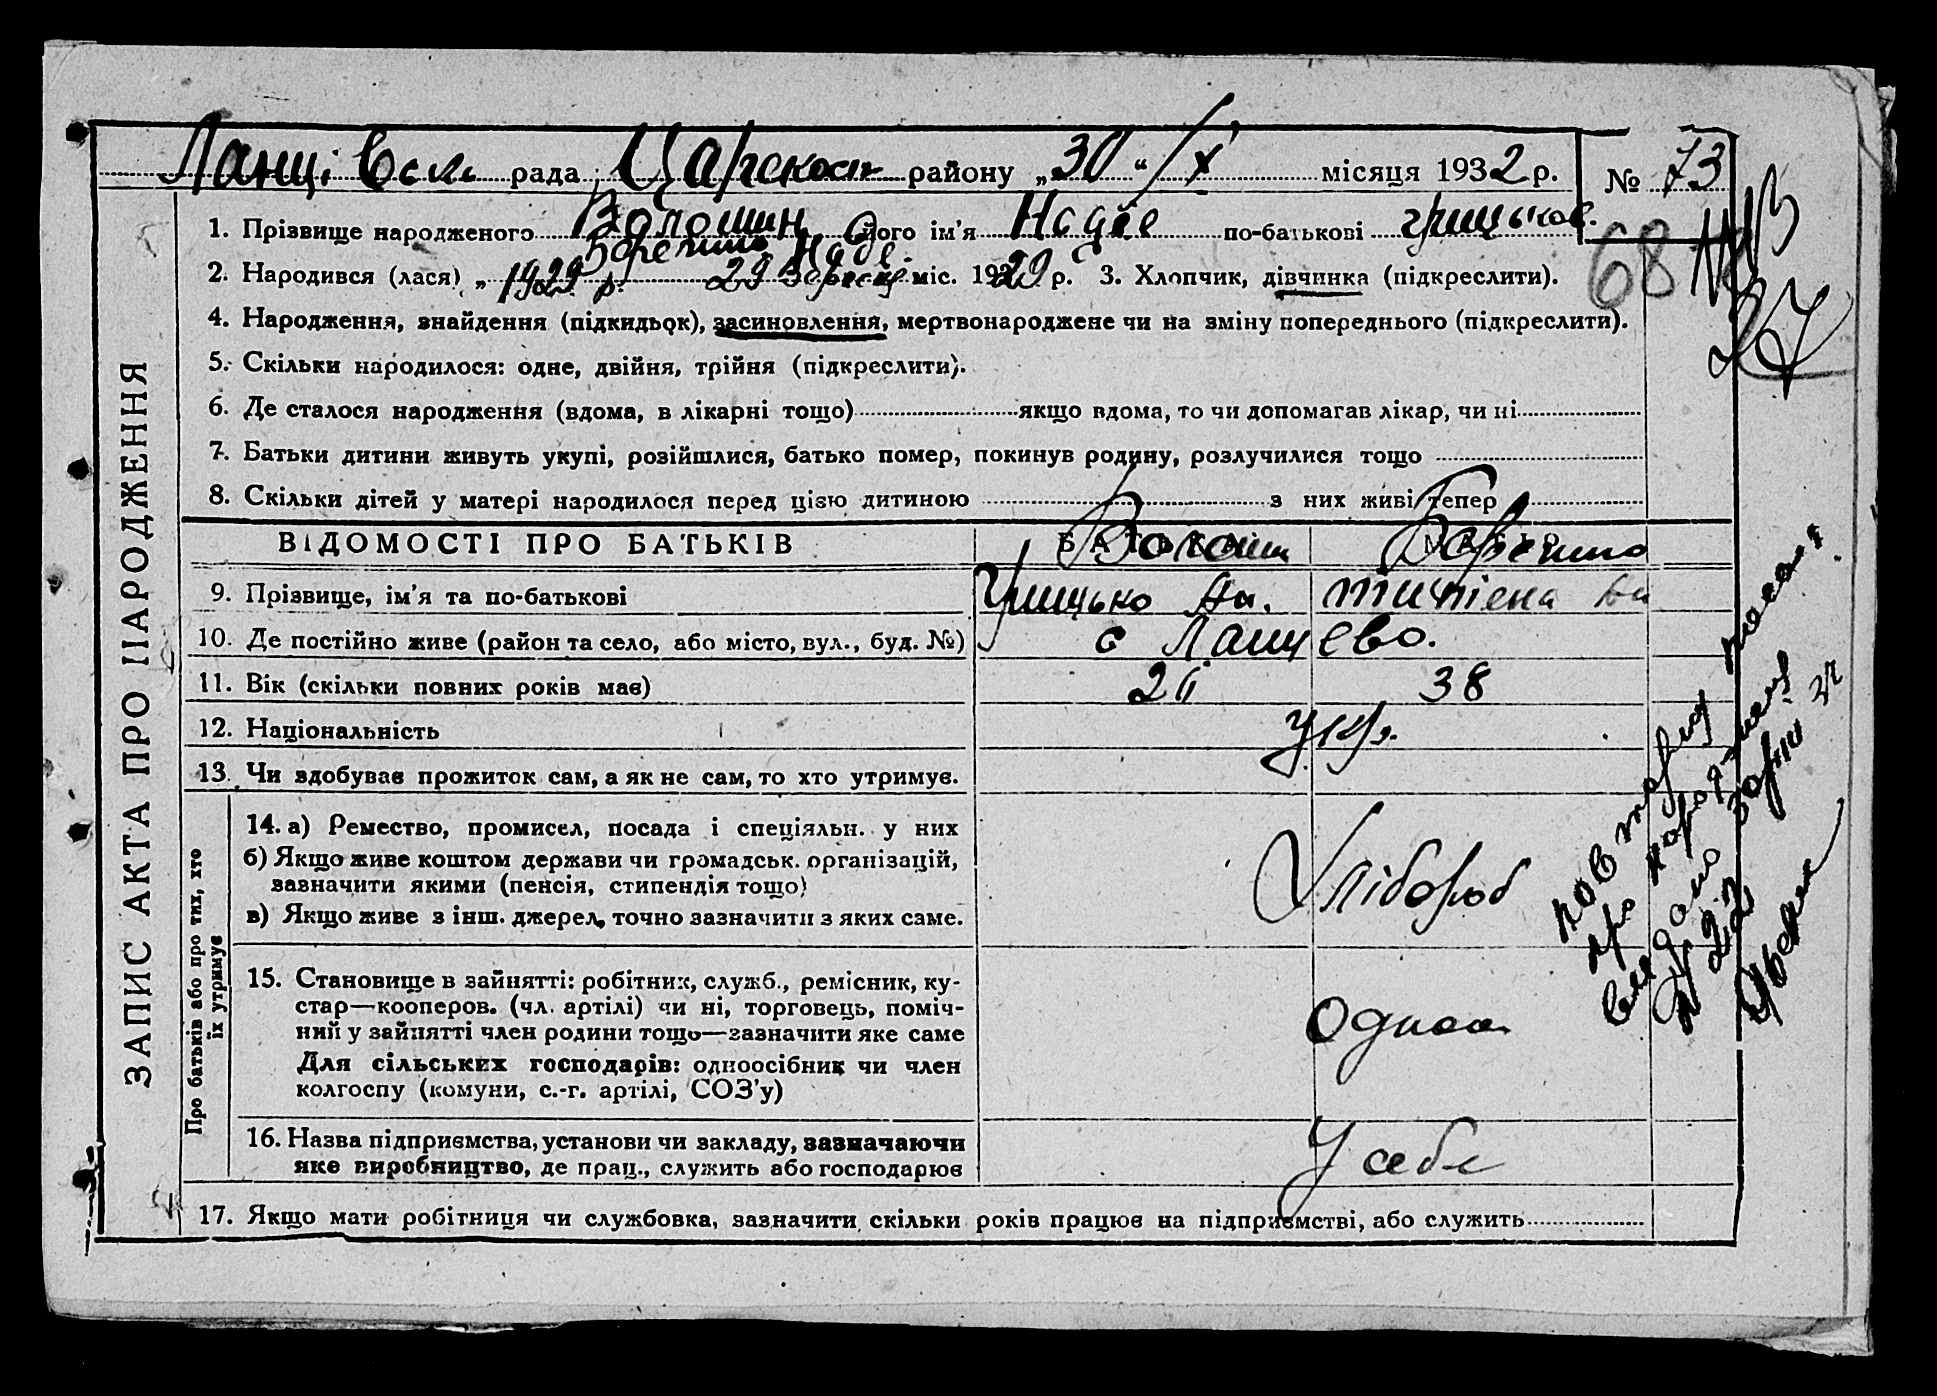 рада району „30“ / X місяця 1932 р. № 73
1. Прізвище народженого Волошин його ім'я Надіє по-батькові Грицьков.
Надє.
2. Народився (лася) „ 1929 р. 29 Вересня міс. 1929 р. 3. Хлопчик, дівчинка (підкреслити).
68
4. Народження, знайдення (підкидьок), засиновлення, мертвонароджене чи на зміну попереднього (підкреслити).
5. Скільки народилося: одне, двійня, трійня (підкреслити).
6. Де сталося народження (вдома, в лікарні тощо) якщо вдома, то чи допомагав лікар, чи ні
7. Батьки дитини живуть укупі, розійшлися, батько помер, покинув родину, розлучилися тощо
8. Скільки дітей у матері народилося перед цією дитиною з них живі тепер
ЗАПИС АКТА ПРО НАРОДЖЕННЯ
ВІДОМОСТІ ПРО БАТЬКІВ БАТЬКО Волошин МАТИ
9. Прізвище, ім'я та по-батькові Грицько
10. Де постійно живе (район та село, або місто, вул., буд. №) с Ланцево.
11. Вік (скільки повних років має) 38
12. Національність Укр.
13. Чи здобував прожиток сам, а як не сам, то хто утримує.
Про батьків або про тих, хто
їх утримує
14. а) Ремество, промисел, посада і спеціяльн. у них
б) Якщо живе коштом держави чи громадськ. організацій,
зазначити якими (пенсія, стипендія тощо)
Хлібороб
в) Якщо живе з інш. джерел, точно зазначити з яких саме.
15. Становище в зайнятті: робітник, служб., ремісник, ку-
стар—кооперов. (чл. артілі) чи ні, торговець, поміч-
ний у зайнятті член родини тощо—зазначити яке саме
Для сільських господарів: одноосібник чи член
колгоспу (комуни, с.-г. артілі, СОЗ'у)
16. Назва підприємства, установи чи закладу, зазначаючи
яке виробництво, де прац., служить або господарює
У себе
17. Якщо мати робітниця чи службовка, зазначити скільки років працює на підприємстві, або служить
повторну
про народження
видано